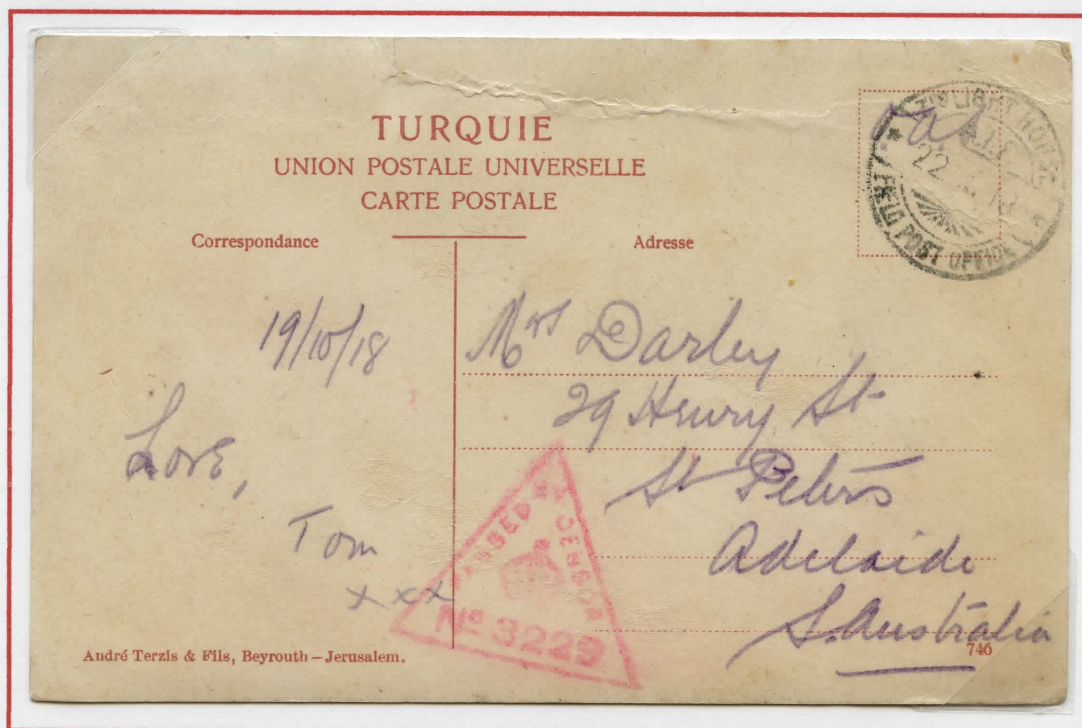 TURQUIE
UNION POSTALE UNIVERSELLE
CARTE POSTALE
Correspondance
Adresse
LIGHT HORSE
A.I.F.
22
18
FIELD POST OFFICE
19/10/18
Love,
Tom
xxx
Mrs Darley
29 Henry St
St Peters
Adelaide
S. Australia
PASSED BY CENSOR
No 3229
André Terzis & Fils, Beyrouth – Jerusalem.
746